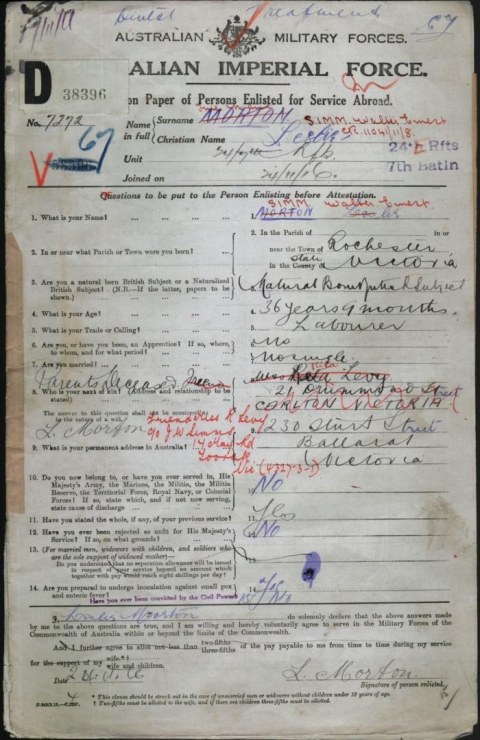 Dentist Treatment
67
AUSTRALIAN MILITARY FORCES.
ALIAN IMPERIAL FORCE.
D
38396
on Paper of Persons Enlisted for Service Abroad.
No. 7272
67
Name in full
Surname MORTON SIMM. Walter Ernest
Christian Name Leslie
Unit 24/7th Rfts.
24th Rfts
7th Batln
Joined on 24/11/16.
Questions to be put to the Person Enlisting before Attestation.
1. What is your Name? ... 1. MORTON Leslie SIMM. Walter Ernest
2. In or near what Parish or Town were you born? ... 2. In the Parish of in or
near the Town of Rochester
in the County of state Victoria
3. Are you a natural born British Subject or a Naturalized
British Subject? (N.B.—If the latter, papers to be
shown.) Natural Born British Subject
4. What is your Age? 36 years 9 months.
5. What is your Trade or Calling? 5. Labourer
6. Are you, or have you been, an Apprentice? If so, where,
to whom, and for what period? 6. No
7. Are you married? No single.
Parents Deceased Friend
8. Who is your next of kin? (Address and relationship to be
stated) Miss Rita Levy
21 Drummond Street
CARLTON VICTORIA
L. Morton
Friend Miss R Levy
9. What is your permanent address in Australia? 230 Sturt Street
Ballarat
Victoria
10. Do you now belong to, or have you ever served in, His
Majesty's Army, the Marines, the Militia, the Militia
Reserve, the Territorial Force, Royal Navy, or Colonial
Forces? If so, state which, and if not now serving,
state cause of discharge No
11. Have you stated the whole, if any, of your previous service? Yes
12. Have you ever been rejected as unfit for His Majesty's
Service? If so, on what grounds? No
13. (For married men, widowers with children, and soldiers who
are the sole support of widowed mother)—
Do you understand that no separation allowance will be issued
in respect of your service beyond an amount which
together with pay would reach eight shillings per day?
14. Are you prepared to undergo inoculation against small pox
and enteric fever? Yes
Have you ever been convicted by the Civil Power?
I, Leslie Moorton do solemnly declare that the above answers made
by me to the above questions are true, and I am willing and hereby voluntarily agree to serve in the Military Forces of the
Commonwealth of Australia within or beyond the limits of the Commonwealth.
And I further agree to allot not less than two-fifths three-fifths of the pay payable to me from time to time during my service
for the support of my wife.* wife and children.
Date
L. Morton.
Signature of person enlisted.
* This clause should be struck out in the case of unmarried men or widowers without children under 18 years of age.
† Two-fifths must be allotted to the wife, and if there are children three-fifths must be allotted.